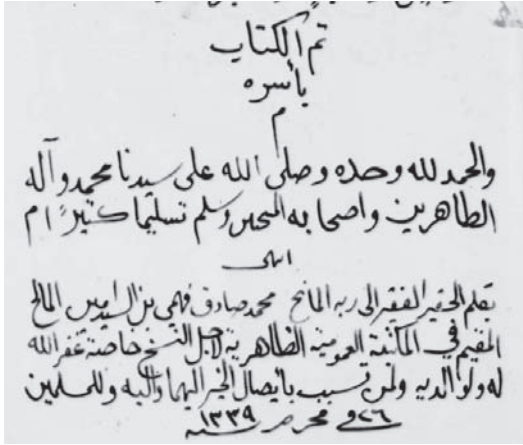 تم الكتاب
بأسره
م
والحمد لله وحده وصلى الله على سيدنا محمد وآله
الطاهرين واصحابه وسلم تسليما كثيرًا م
انتهى
بقلم الحقير الفقير الى ربه المانح محمد صادق فهمي بن السيد امين المالح
المقيم في المكتبة العمومية الظاهرية لاجل النسخ خاصة غفر الله
له ولوالديه ولمن تسبب بايصال الخير اليهما واليه وللمسلمين
٢٦ في محرم سنة ١٣٣٩